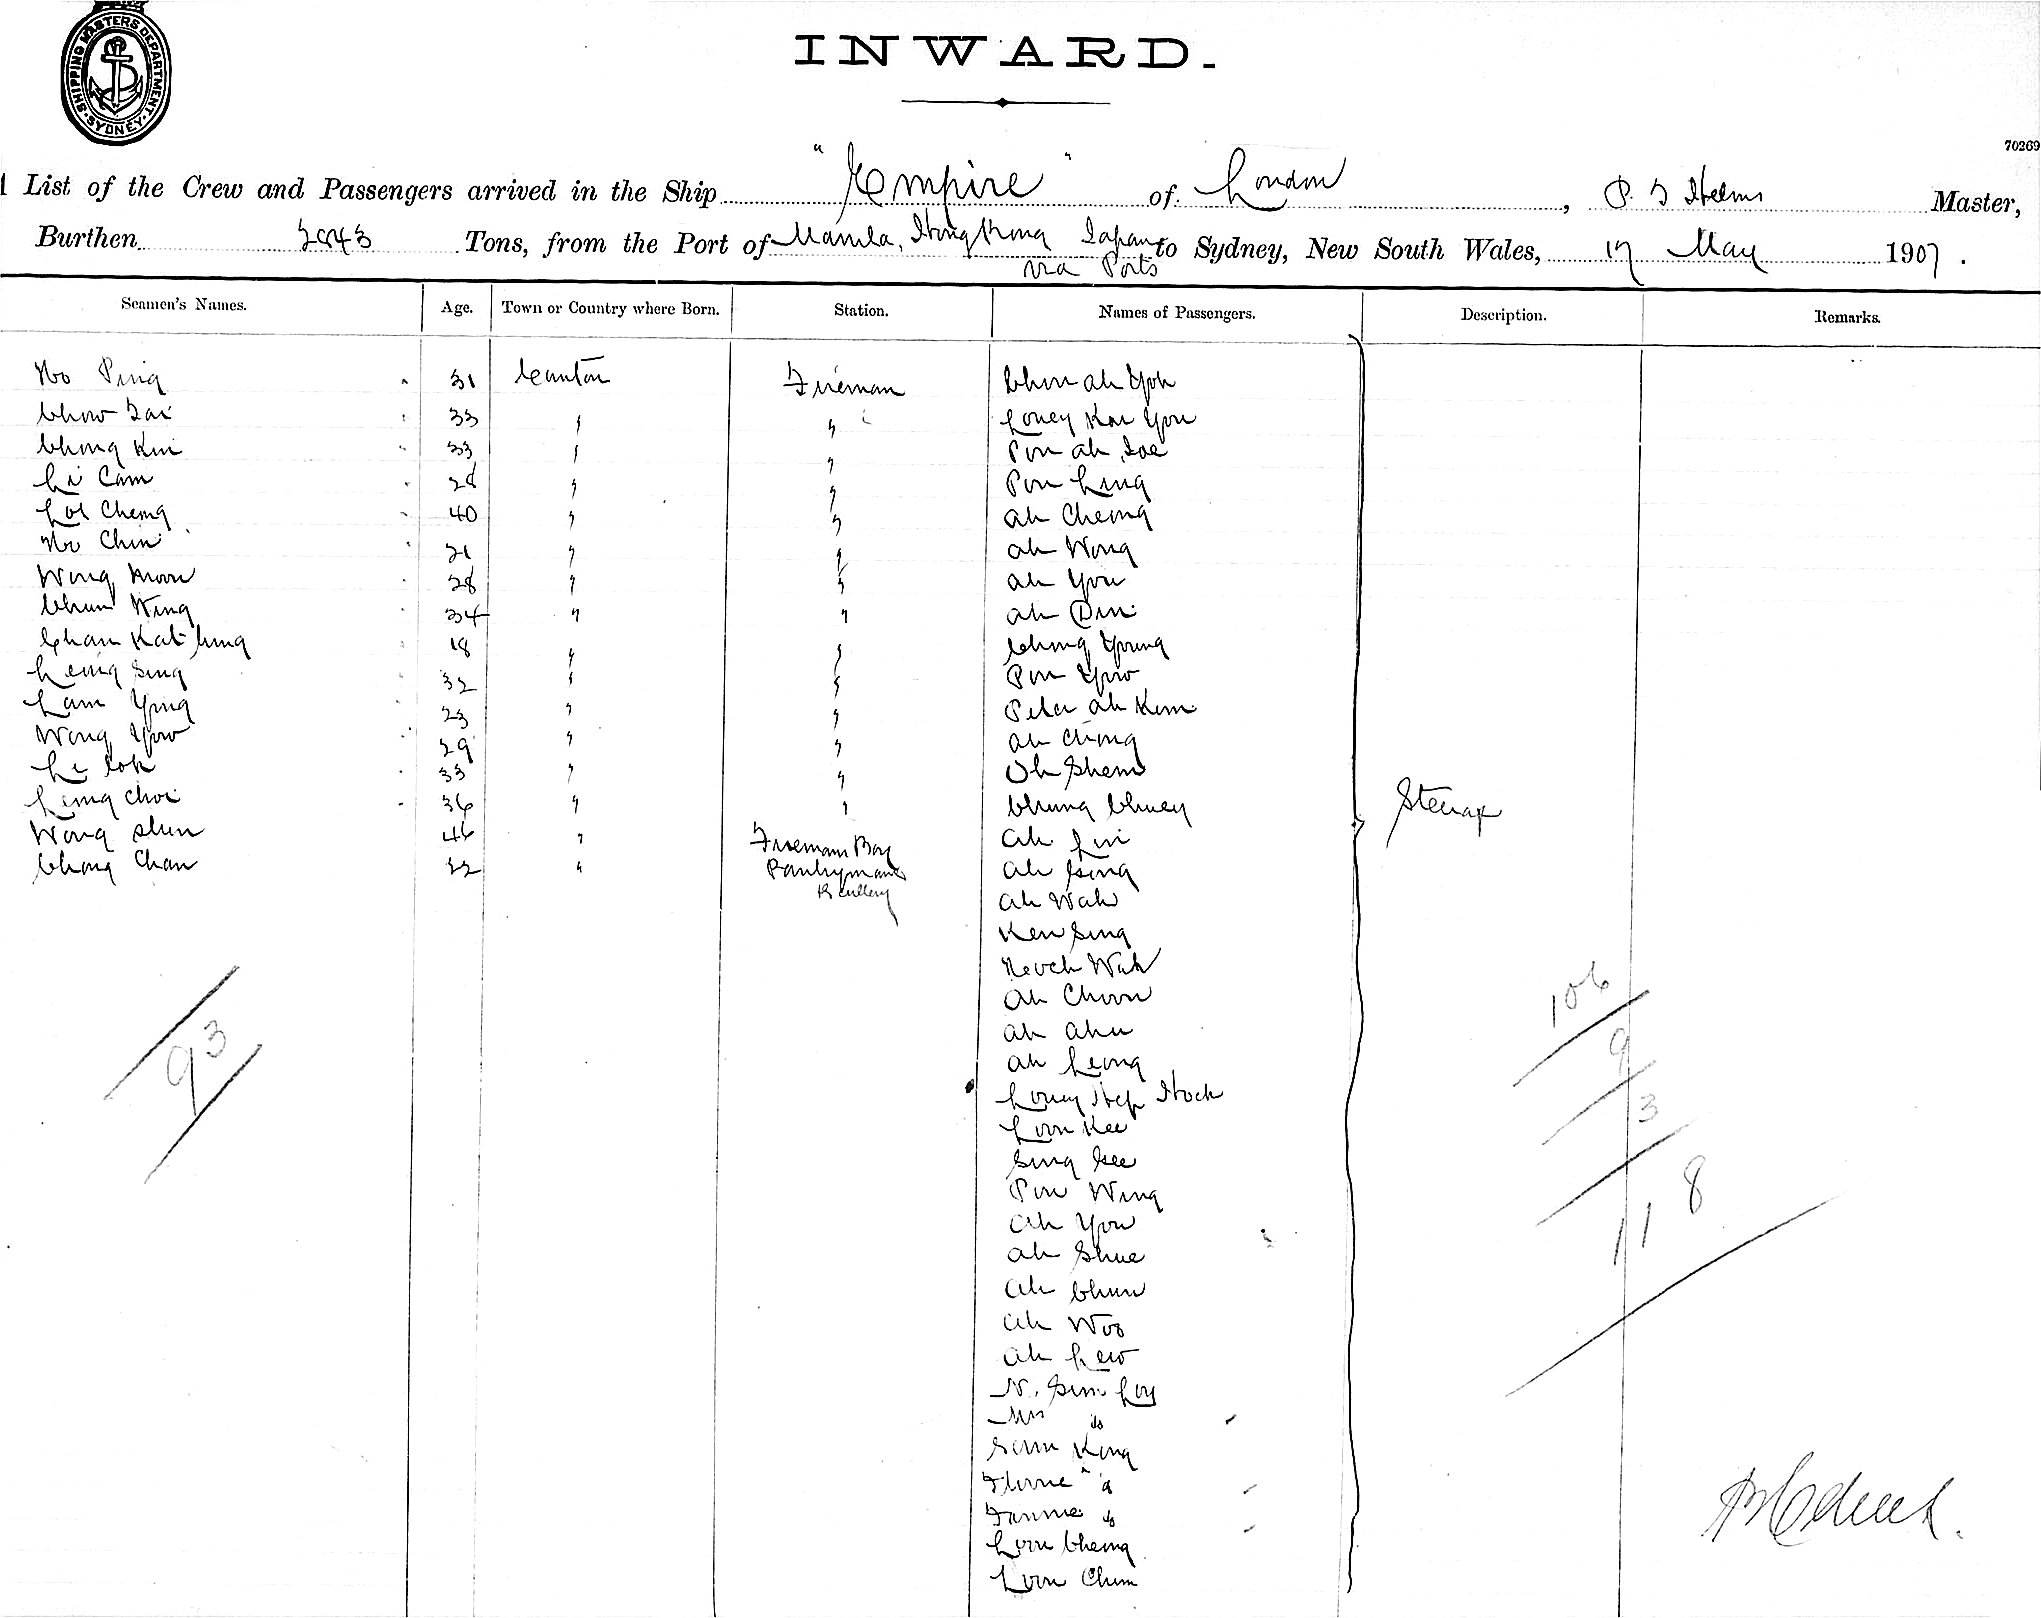 SHIPPING MASTERS DEPARTMENT
SYDNEY
INWARD.
70269
List of the Crew and Passengers arrived in the Ship "Empire" of London, P. T. Helms Master,
Burthen 2843 Tons, from the Port of Manila, Hong Kong Japan to Sydney, New South Wales, 17 May 1907.
via Ports
Seamen's Names. Age. Town or Country where Born. Station. Names of Passengers. Description. Remarks.
Ho Ping 31 Canton Fireman Chun ah Yok
Chow Tai 33 " " Loney Kai You
Chong Kui 33 " " Pon ah Joe
Li Cam 28 " " Pon Ling
Loi Cheng 40 " " Ah Cheong
Ho Chin 21 " " Ah Wong
Wong Moon 28 " " Ah You
Chun Wing 34 " " Ah Din
Chan Kat hing 18 " " Chong Young
Leong Sing 32 " " Pon Yow
Lam Ying 23 " " Peter ah Kem
Wong Yow 29 " " Ah Chong
Li Lok 33 " " Oh Shem
Leong Choi 36 " " Chung Chuey
Steerage
Wong Shun 46 " Fireman Boy Ah Lin
Chong Chan 32 " Pantryman Ah Sing
Scullery
Ah Wah
Ken Sing
Wah
Ah Choon
Ah Ahu
Ah Leong
Loney Hep Hock
Loon Kee
Sing See
Pon Wing
Ah You
Ah Shue
Ah Chun
Ah Woo
Ah Lew
N. Sim Loy
Mrs do
Sam Kong
Florrie " d
Fannie do
Loon Cheong
Loon Chun
93
106
9
3
118